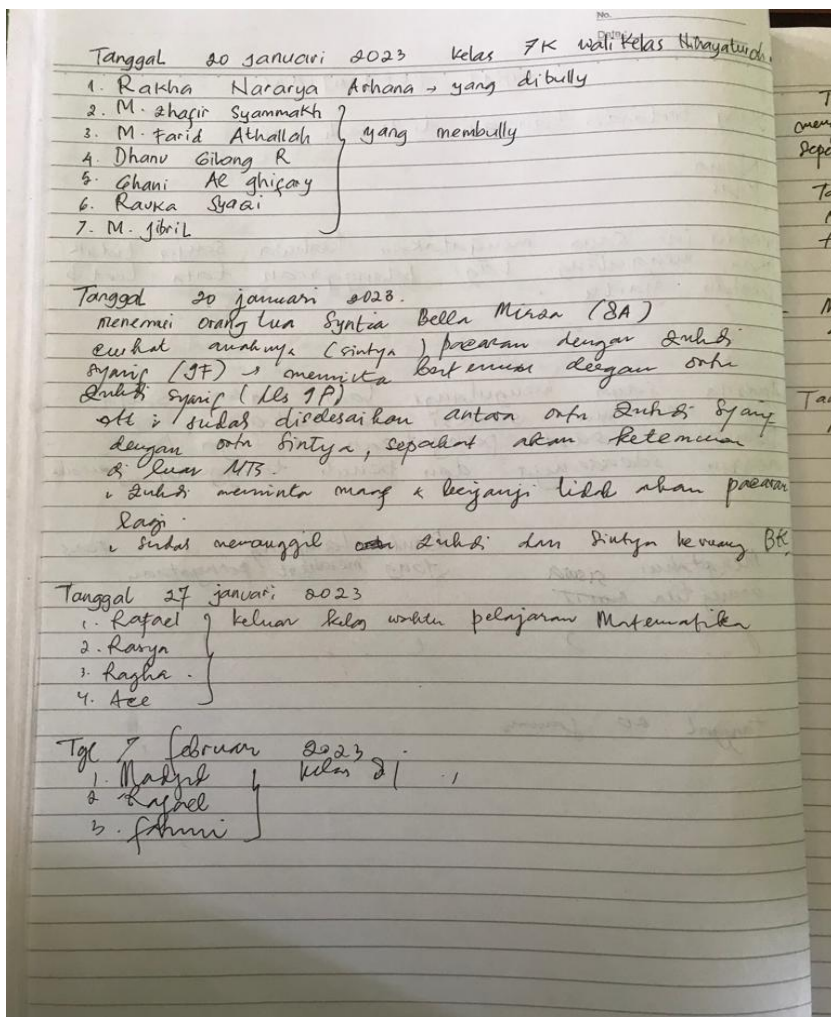 No.
Date
Tanggal 20 Januari 2023 kelas 7K wali kelas Hidayaturoh.
1. Rakha Nararya Arhana → yang dibully
2. M. Zhafir Syammakh
3. M. Farid Athallah } yang membully
4. Dhanu Gilang R
5. Ghani Al ghifary
6. Rauka Syaqi
7. M. Jibril
Tanggal 20 januari 2023.
menemui orang tua Syntia Bella (8A)
curhat anaknya (sintya) pacaran dengan Zuhdi
Syarif (9F) → meminta bertemu dengan ortu
Zuhdi Syarif (kls 9F)
: sudah diselesaikan antara ortu Zuhdi Syarif
dengan ortu Sintya, sepakat akan ketemuan
di luar MTs.
Zuhdi meminta maaf & berjanji tidak akan pacaran
lagi.
sudah memanggil Zuhdi dan Sintya keruang BK.
Tanggal 27 januari 2023
1. Rafael } keluar kelas waktu pelajaran Matematika
2. Rasya
3. Ragha
4. Ace
Tgl 7 februari 2023
1. Madjid kelas
2 Rafael
3. fahmi